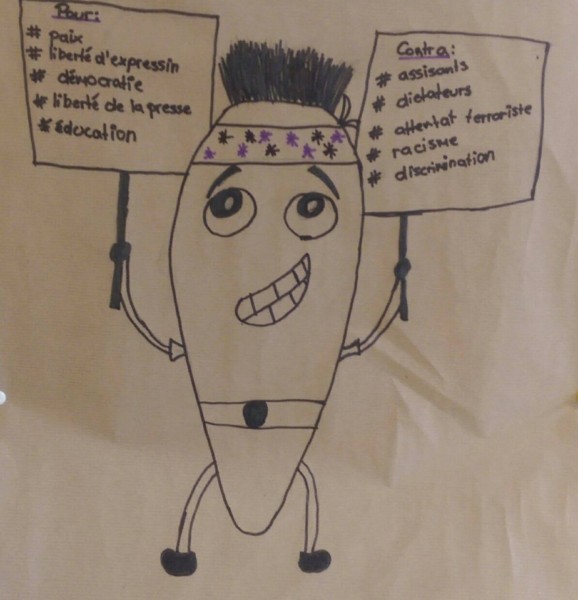 Pour:
# paix
# liberté d'expressin
# démocratie
# liberté de la presse
# éducation
Contra:
# assisants
# dictateurs
# attentat terroriste
# racisme
# discrimination